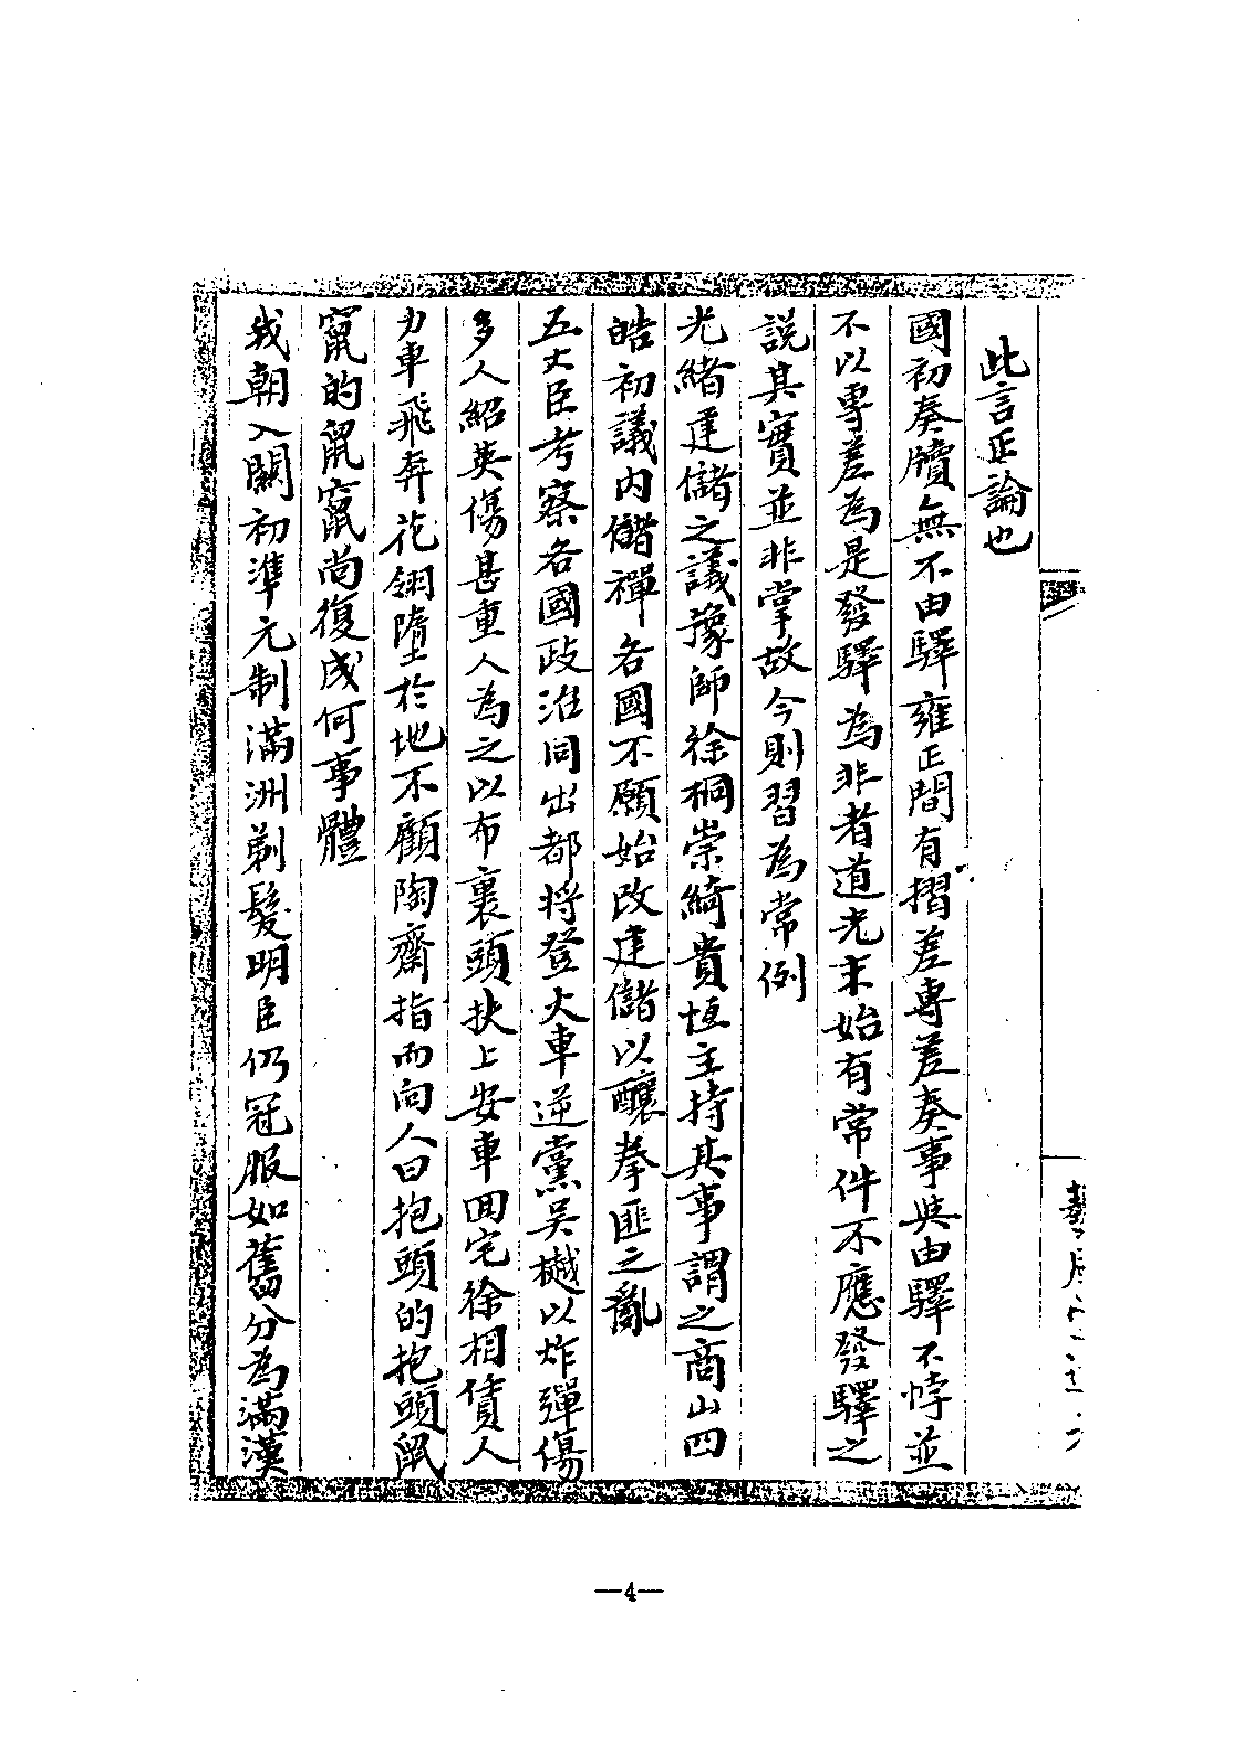 此言正論也
國初奏牘無不由驛雍正間有摺差專差奏事與由驛不悖並
不以專差為是發驛為非者道光末始有常件不應發驛之
說其實並非掌故今則習為常例
光緒建儲之議豫師徐桐崇綺貴恆主持其事謂之商山四
皓初議內儲禪各國不願始改建儲以釀拳匪之亂
五大臣考察各國政治同出都將登火車逆黨吳樾以炸彈傷
多人紹英傷甚重人為之以布裹頭扶上安車回宅徐相賃人
力車飛奔花翎墮於地不顧陶齋指而向人曰抱頭的抱頭鼠
竄的鼠竄尚復成何事體
我朝入關初準元制滿洲剃髮明臣仍冠服如舊分為滿漢
—4—